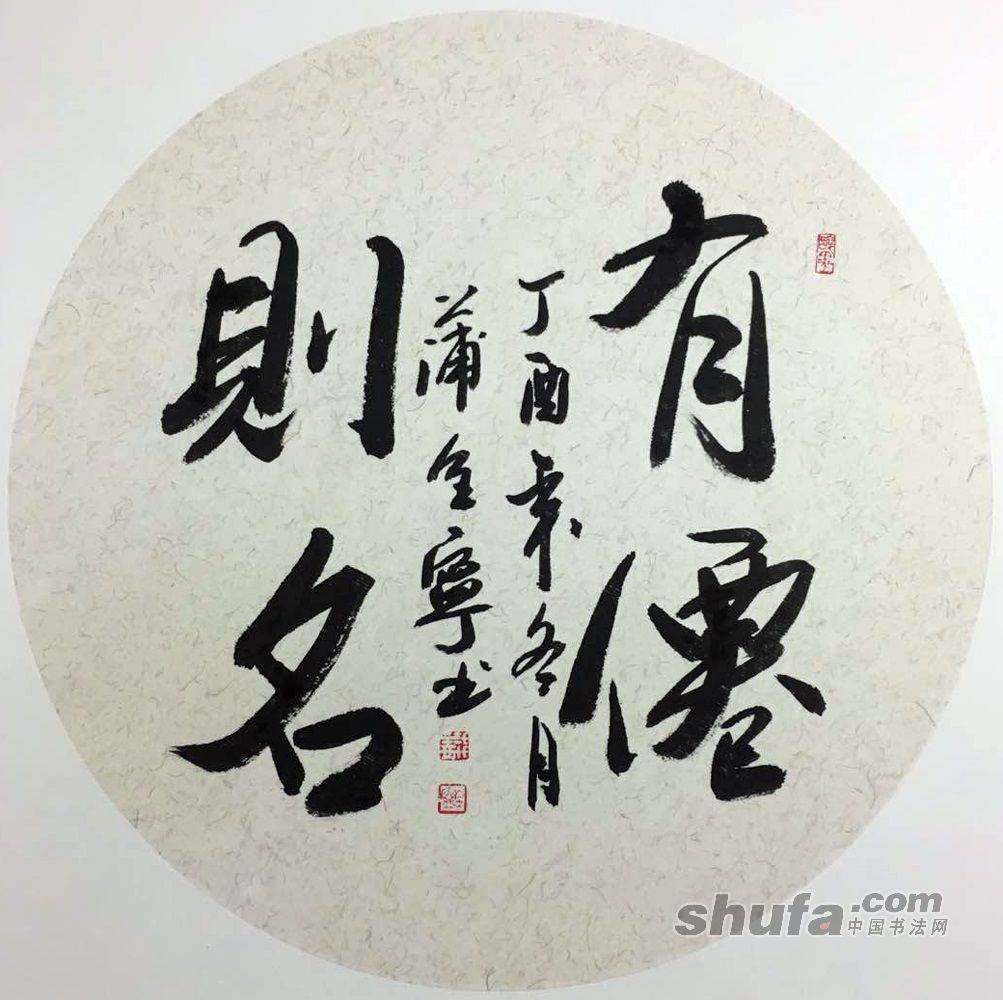 有僊
則名
丁酉年冬月
蒲全寧书
shufa.com
中国书法网